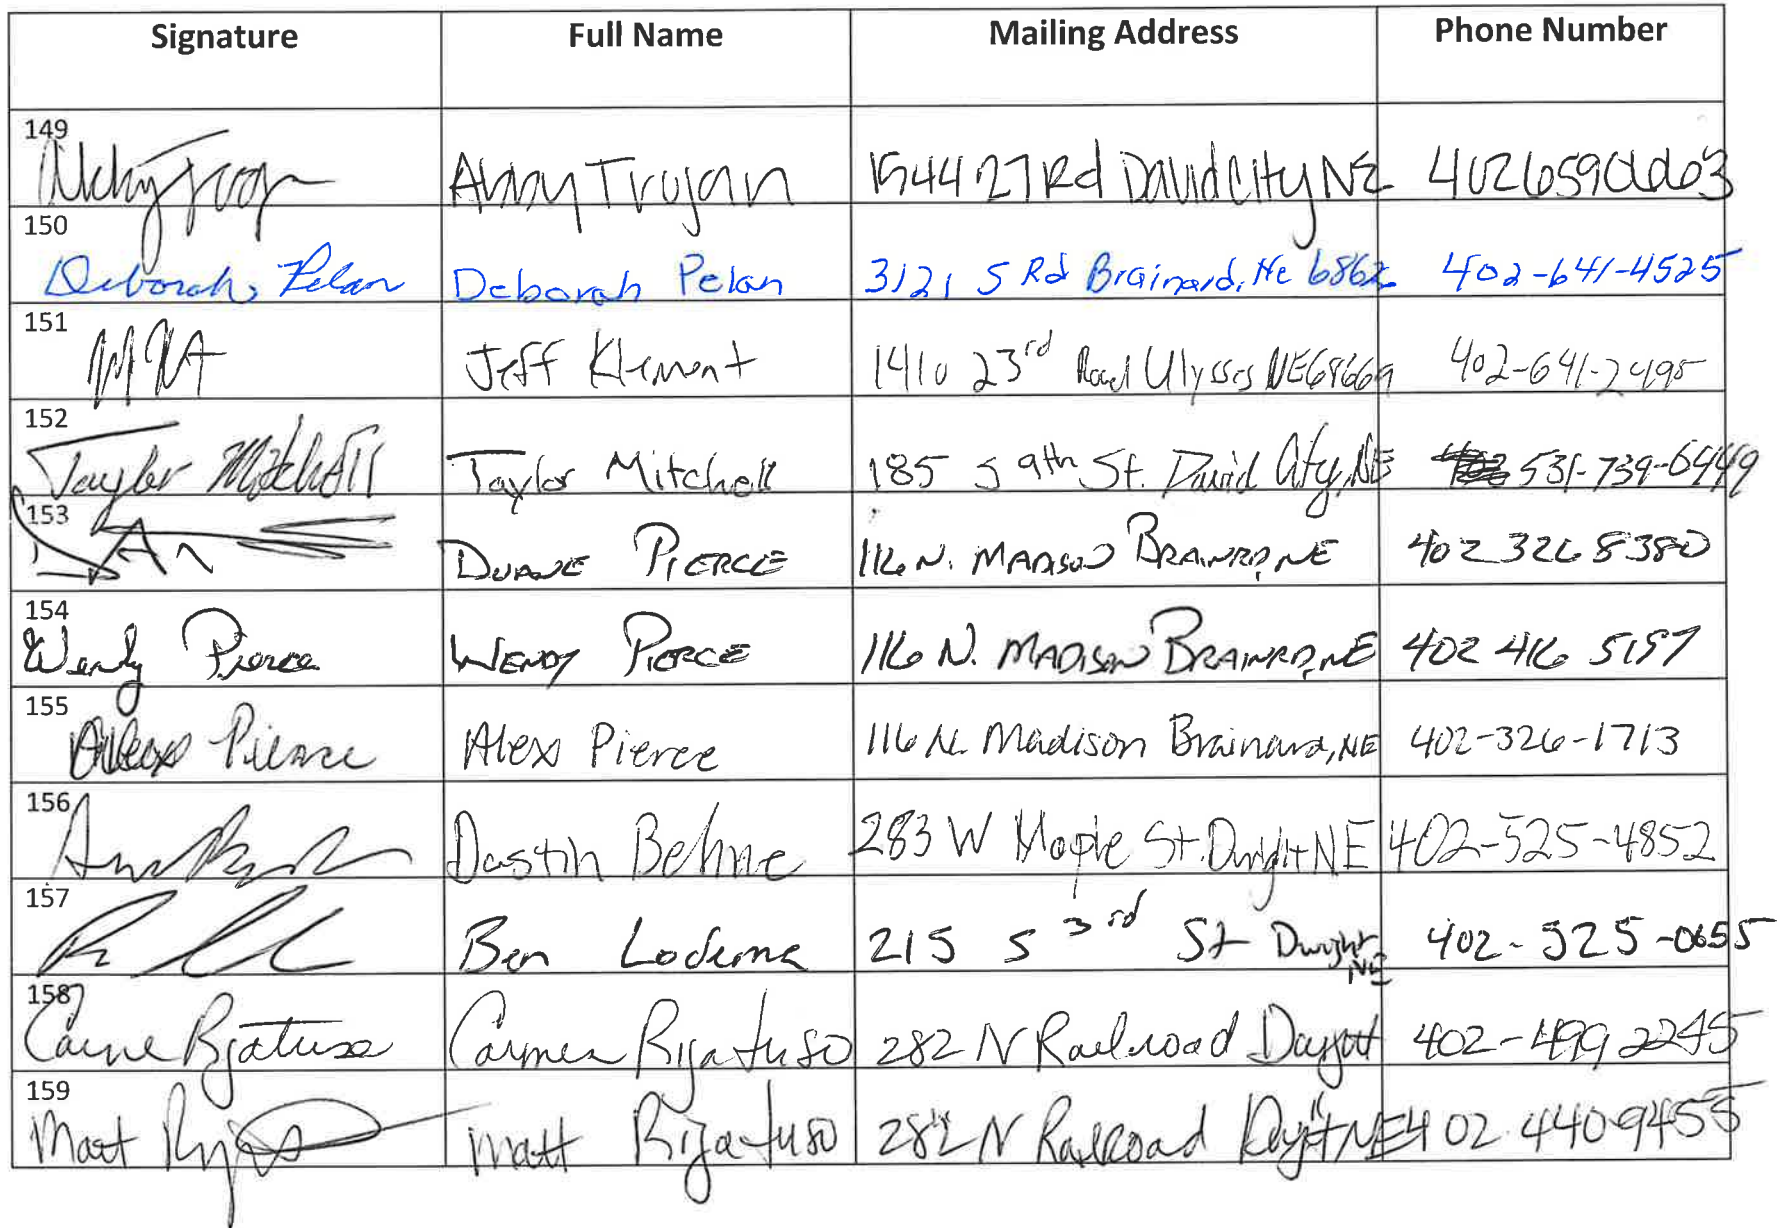 Signature Full Name Mailing Address Phone Number
149 Abby Trojan 1544 27 Rd David City NE
150 Deborah Pelan Deborah Pelan 3121 S Rd Brainard, Ne 6862 402-641-4525
151 Jeff Klement 1410 23rd Road Ulysses NE 68669 402-641-2495
152 Taylor Mitchell Taylor Mitchell 185 S 9th St. David City, NE 531-739-6449
153 DUANE PIERCE 116 N. MADISON BRAINRD, NE 402 326 8380
154 Wendy Pierce WENDY PIERCE 116 N. MADISON BRAINRD, NE 402 416 5197
155 Alexs Pierce Alexs Pierce 116 N. Madison Brainard, NE 402-326-1713
156 Dustin Behne 283 W Maple St. Dwight NE 402-525-4852
157 Ben 215 S 3rd St Dwight 402-525-0655
NE
158 Rijatuso Rijatuso 282 N Railroad Dwight 402-499 2245
159 Matt Matt Rijatuso 282 N Railroad Dwight NE 402 440 9455